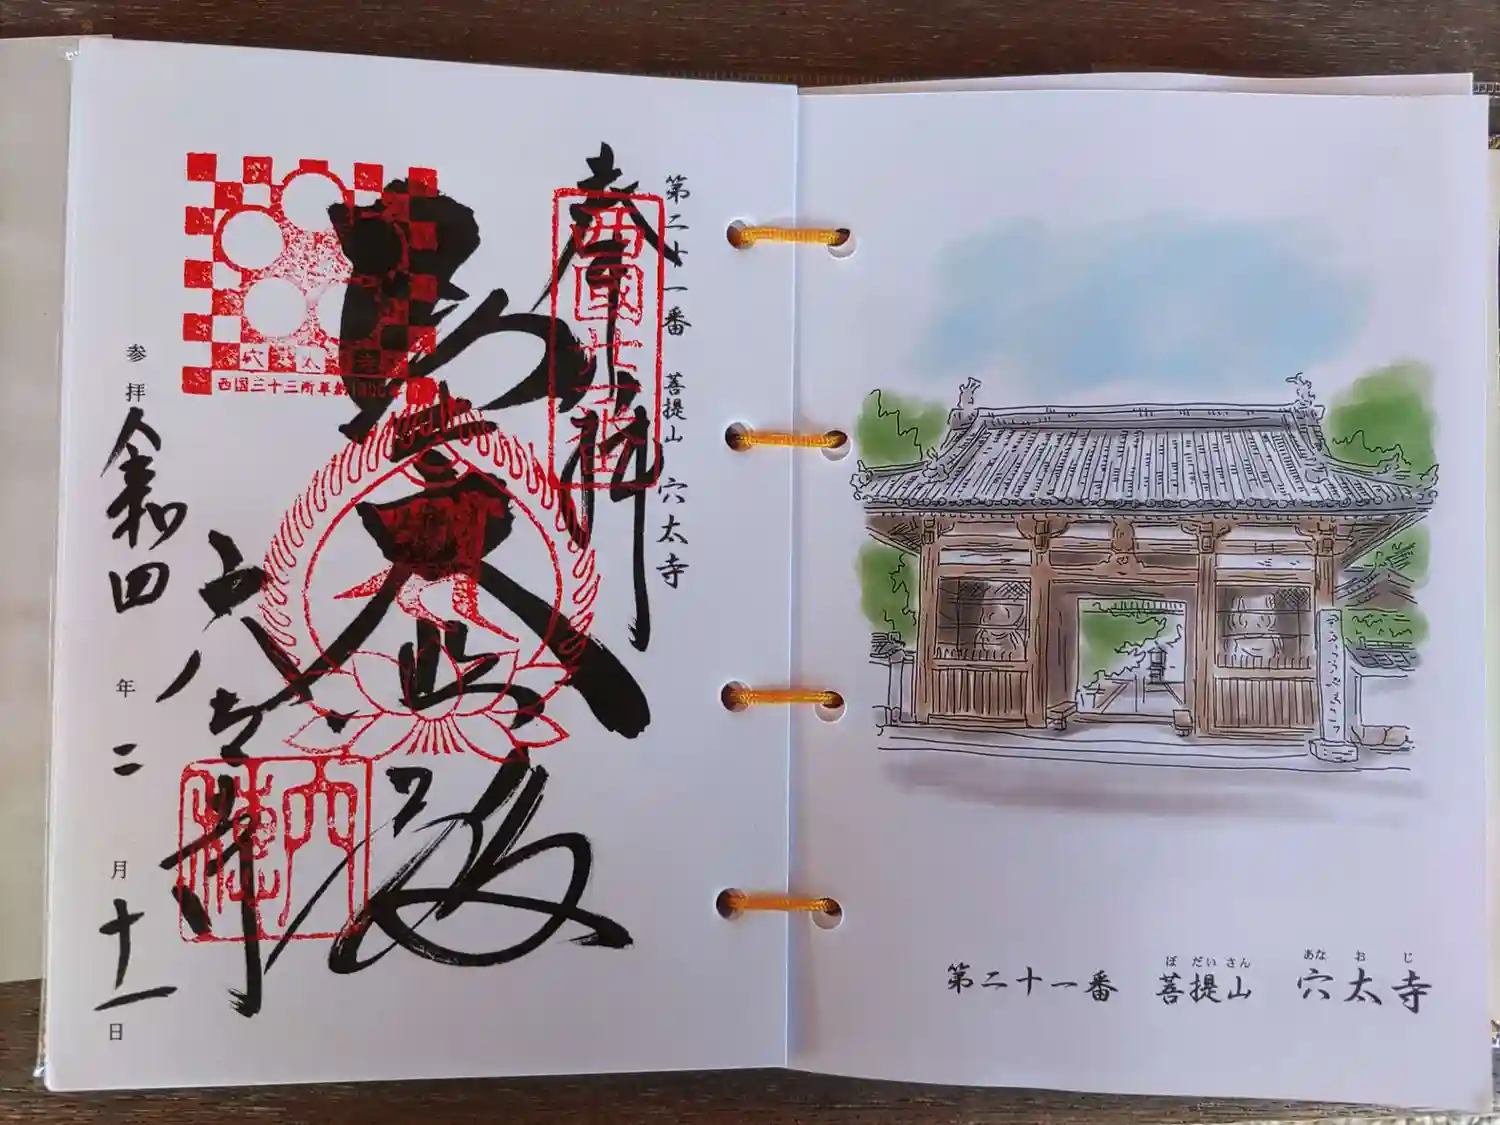 第二十一番　菩提山　穴太寺
奉拝
西國廿一番
聖大悲殿
穴太寺
西国三十三所草創1300年
穴太寺
参拝 令和四年二月十一日
第二十一番　菩提山　穴太寺
ぼだいさん　あなおじ